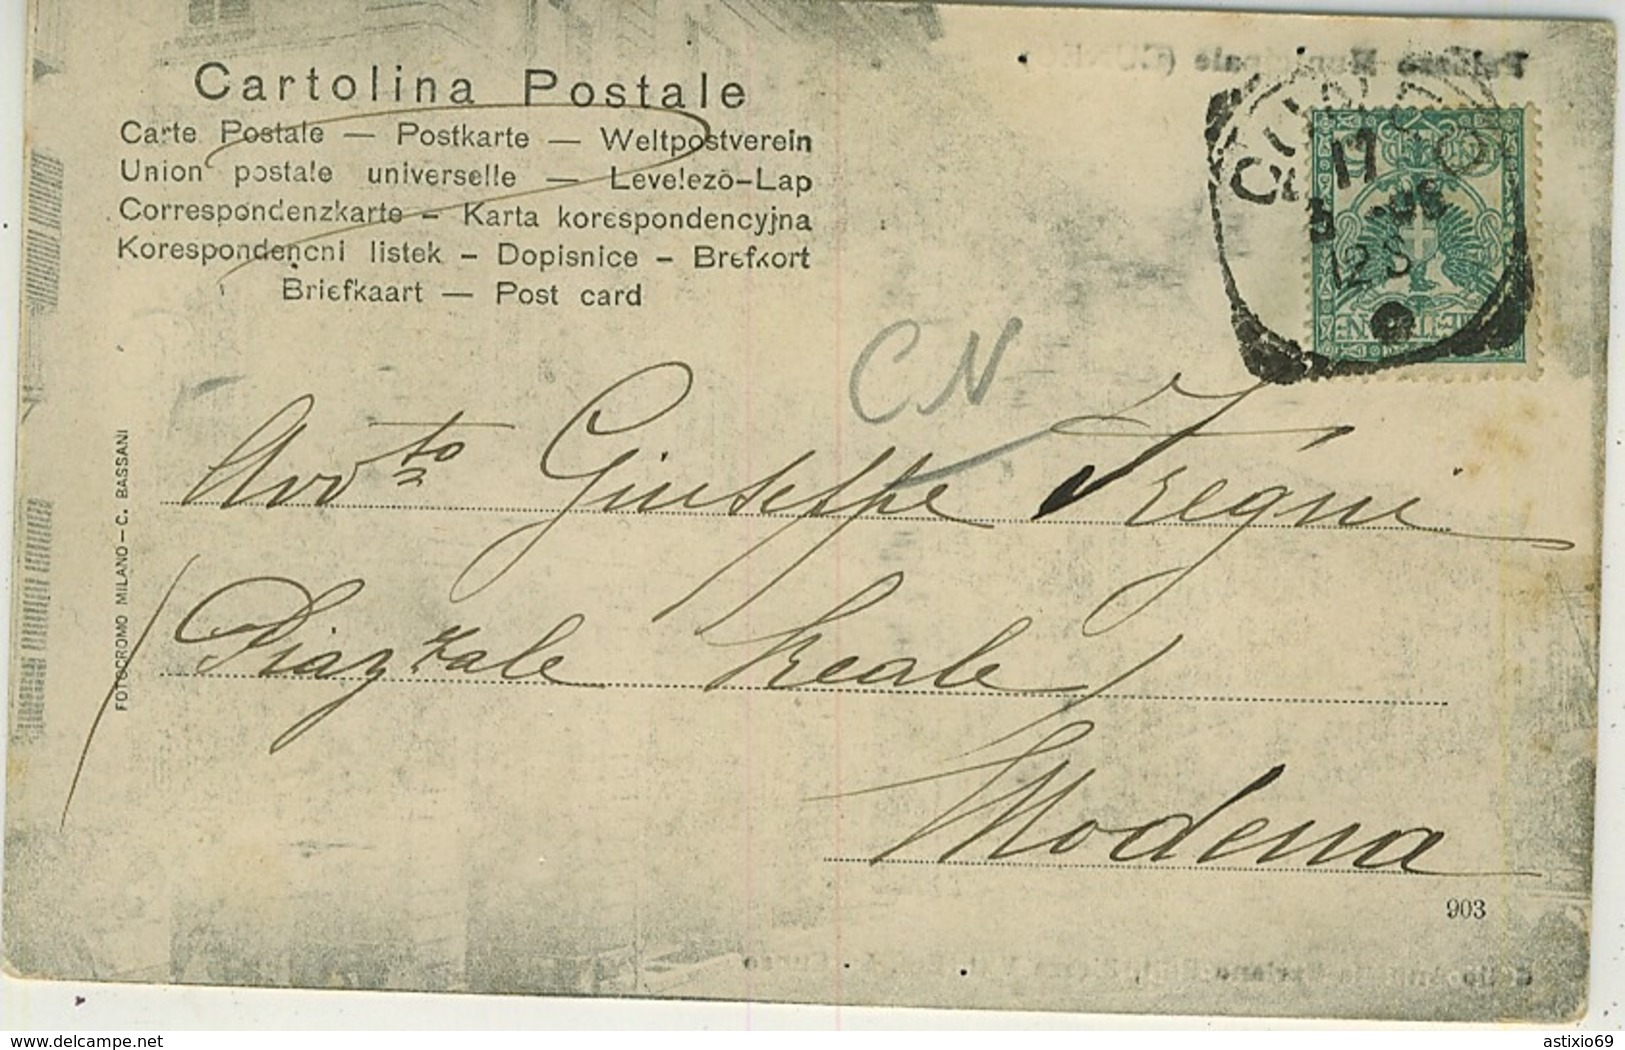 Cartolina Postale
Carte Postale — Postkarte — Weltpostverein
Union postale universelle — Levelezō-Lap
Correspondenzkarte – Karta korespondencyjna
Korespondencni listek – Dopisnice – Brefkort
Briefkaart — Post card
CUNEO
17
5
12 S
CN
Avv.to Giuseppe Tregni
Piazzale Reale
Modena
FOTOCROMO MILANO – C. BASSANI
903
delcampe.net
astixio69